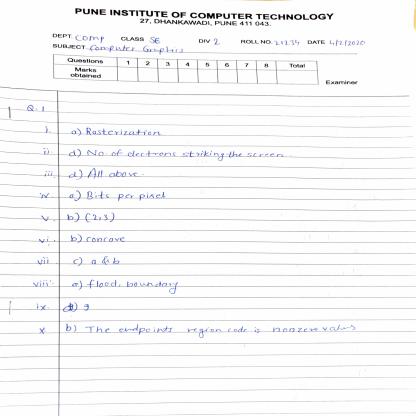 PUNE INSTITUTE OF COMPUTER TECHNOLOGY
27, DHANKAWADI, PUNE 411 043.
DEPT Comp CLASS SE DIV 2 ROLL NO. 21234 DATE 4/2/2020
SUBJECT Computer Graphics
Questions 1 2 3 4 5 6 7 8 Total
Marks obtained
Examiner
Q.1
i. a) Rasterization
ii) d) No. of electrons striking the screen
iii, d) All above.
iv. a) Bits per pixel
v. b) (2,3)
vi. b) concave
vii. c) a & b
viii. a) flood, boundary
ix. d) 9
x b) The endpoints region code is nonzero values